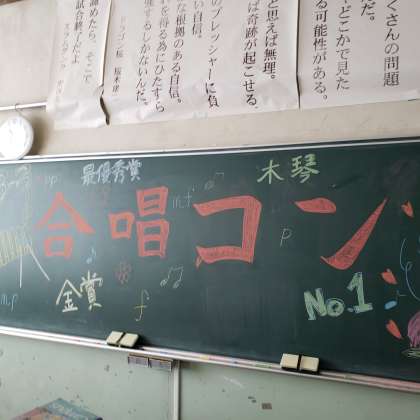 くさんの問題
だ。
どこかで見た
る可能性がある。
と思えば無理。
ば奇跡が起こせる。
のプレッシャーに負
い自信。
な根拠のある自信。
れを得る為にひたすら
強するしかないんだ。
ドラゴン桜 桜木建二
諦めたら、そこで
試合終了だよ
スラムダンク
最優秀賞
木琴
mp
mf
合唱コン
p
金賞
f
No.1
mp